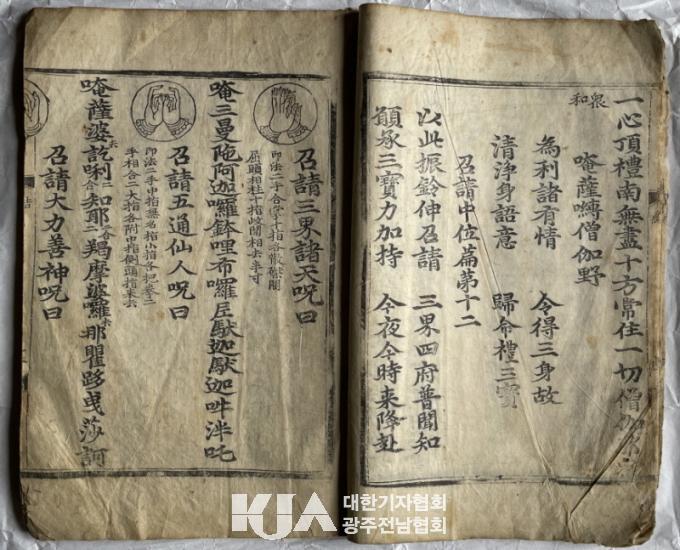 一心頂禮南無盡十方常住一切僧伽
衆和
唵薩嚩僧伽野
為利諸有情 令得三身故
清淨身語意 歸命禮三寶
召請中位篇第十二
以此振鈴伸召請 三界四府普聞知
願承三寶力加持 今夜今時来降赴
召請三界諸天呪曰
印法二手合掌十指各散
屈頭相柱十指岐間相去半寸
唵三曼陁阿迦囉鉢哩布囉馱迦馱迦吽泮吒
召請五通仙人呪曰
印法二手中指無名指小指各把拳二
手相合二大指各附中指側頭指来去
唵薩婆訖唎二合知耶二合羯摩婆囉那瞿跢曵莎訶
召請大力善神呪曰
KJA 대한기자협회
광주전남협회